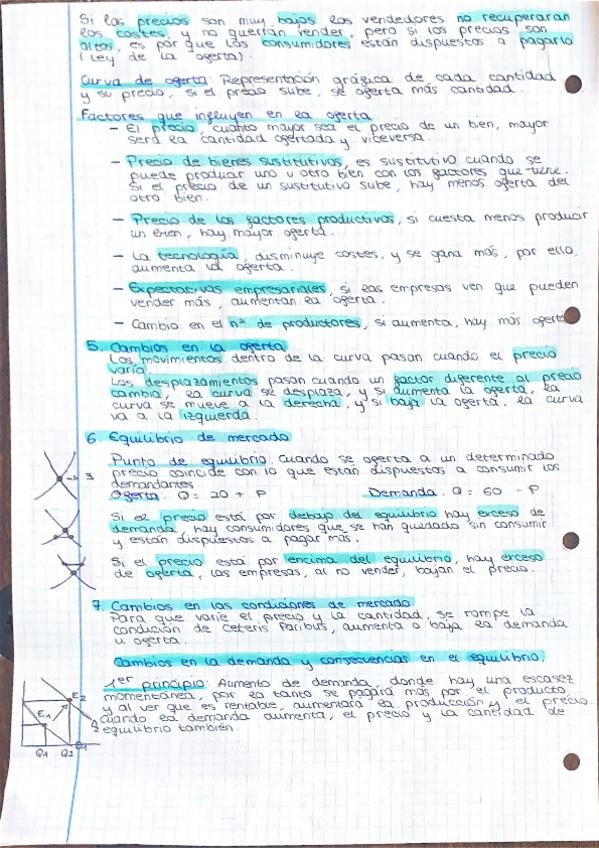 Si los precios son muy bajos los vendedores no recuperaran
los costes, y no querrían vender, pero si los precios son
altos, es por que los consumidores están dispuestos a pagarlo
(ley de la oferta).
Curva de oferta: Representación gráfica de cada cantidad
y su precio, si el precio sube, se oferta más cantidad.
Factores que influyen en la oferta
- El precio, cuanto mayor sea el precio de un bien, mayor
será la cantidad ofertada y viceversa.
- Precio de bienes sustitutivos, es sustitutivo cuando se
puede producir uno u otro bien con los factores que tiene.
Si el precio de un sustitutivo sube, hay menos oferta del
otro bien.
- Precio de los factores productivos, si cuesta menos producir
un bien, hay mayor oferta.
- La tecnología, disminuye costes, y se gana más, por ello,
aumenta la oferta.
- Expectativas empresariales, si las empresas ven que pueden
vender más, aumentan la oferta.
- Cambio en el nº de productores, si aumenta, hay más oferta
5. Cambios en la oferta
Los movimientos dentro de la curva pasan cuando el precio
varía.
Los desplazamientos pasan cuando un factor diferente al precio
cambia, la curva se desplaza, y si aumenta la oferta, la
curva se mueve a la derecha, y si baja la oferta, la curva
va a la izquierda.
6. Equilibrio de mercado
Punto de equilibrio: Cuando se oferta a un determinado
precio coincide con lo que están dispuestos a consumir los
demandantes.
Oferta: O = 20 + P Demanda: Q = 60 - P
Si el precio está por debajo del equilibrio hay exceso de
demanda, hay consumidores que se han quedado sin consumir
y están dispuestos a pagar más.
Si el precio está por encima del equilibrio, hay exceso
de oferta, las empresas, al no vender, bajan el precio.
7. Cambios en las condiciones de mercado
Para que varíe el precio y la cantidad, se rompe la
condición de Ceteris Paribus, aumenta o baja la demanda
u oferta.
Cambios en la demanda y consecuencias en el equilibrio.
1er principio: Aumento de demanda, donde hay una escasez
momentánea, por lo tanto se pagará más por el producto,
y al ver que es rentable, aumentará la producción y el precio.
Cuando la demanda aumenta, el precio y la cantidad de
equilibrio también.
E2
E1
Q1 Q2